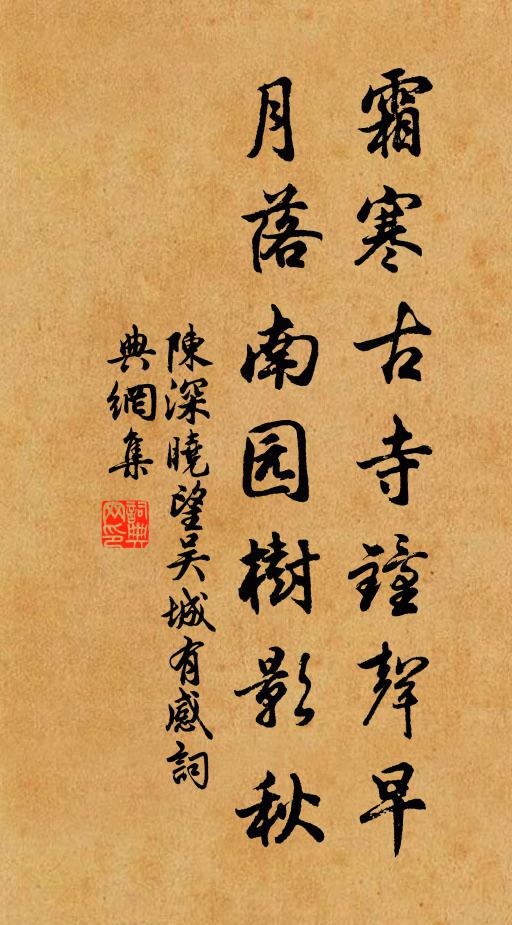 霜寒古寺鐘聲早
月落南园樹影秋
陳深曉望吴城有感詞
典網集
詞典
网印